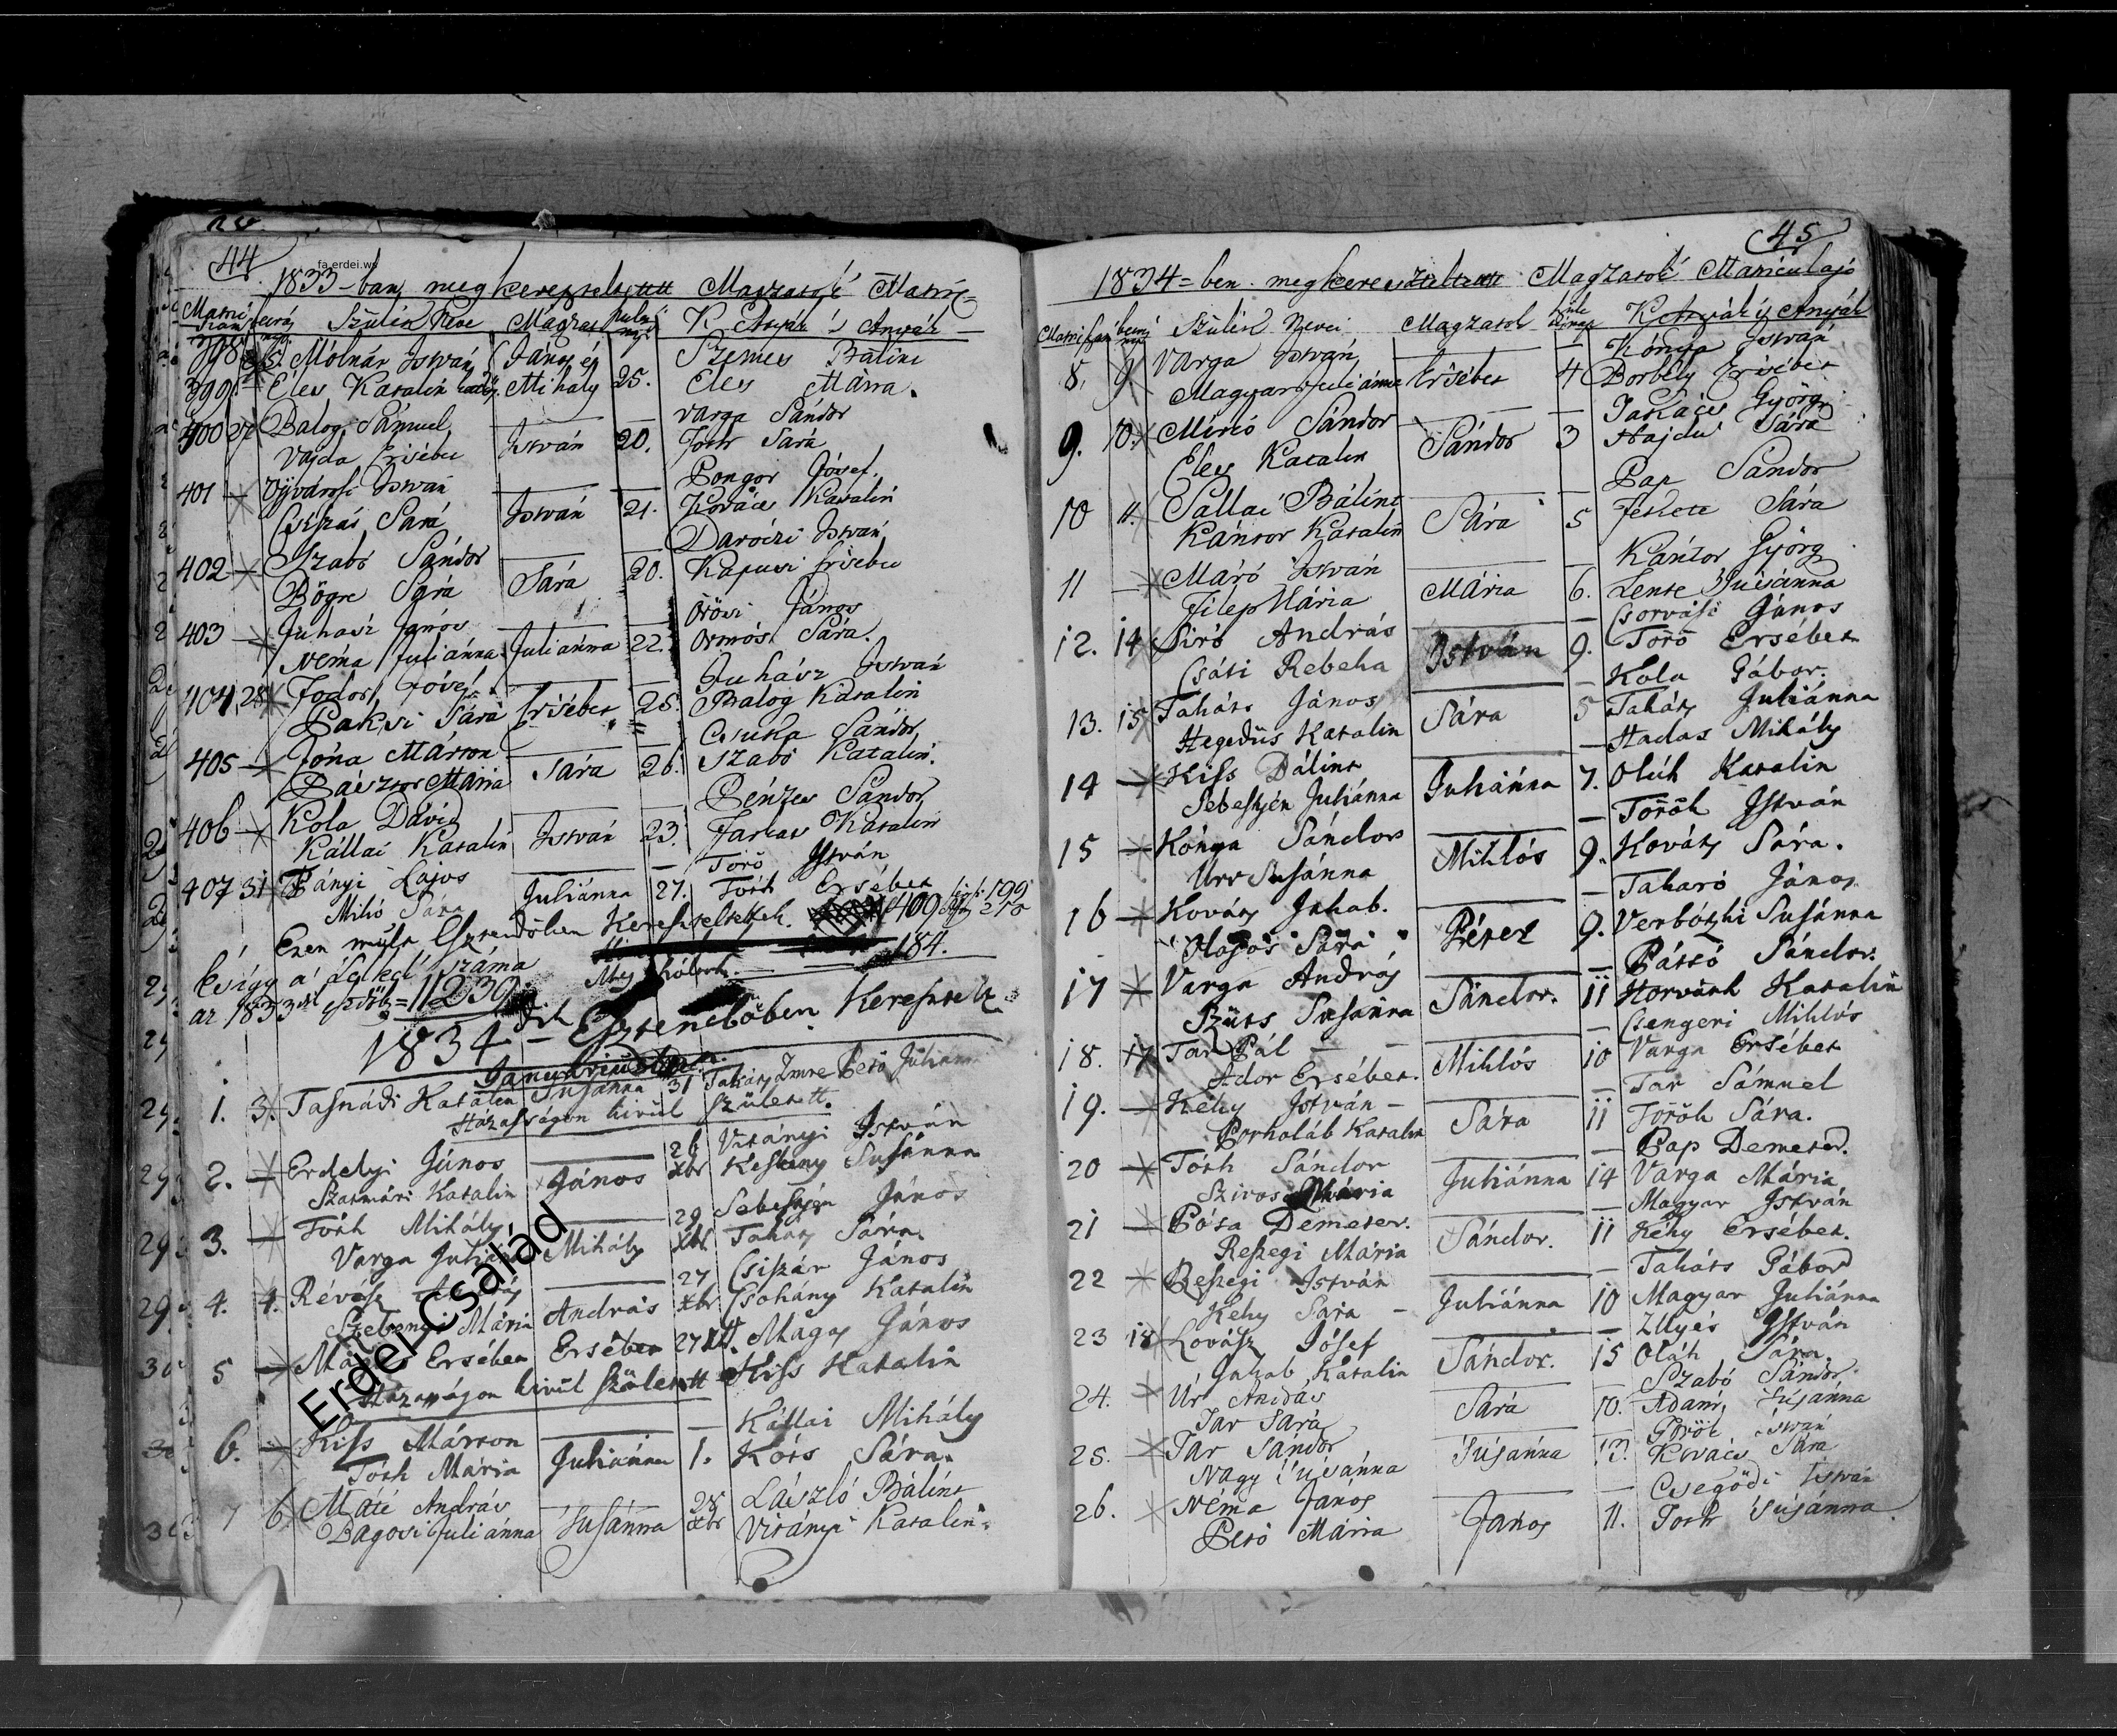 44
fa.erdei.ws
1833-ban megkereszteltettt Magzatok Matric=
Szülék Neve Magzat K Atyák 's Anyák
398 Molnár István János és Szemes Bálint
399 Éles Katalin Mihály 25. Éles Mária.
400 27 Balog Sámuel Varga Sándor
Vajda Ersébet István 20. Toth Sára
401 Ujvárosi István Pongor Jósef.
Csiszár Sára István 21. Kovács Katalin
402 Szabó Sándor Daróczi István
Bögre Sára Sára 20. Kapusi Ersébet
403 Juhász János Örösi János
Néma Juliánna Juliánna 22. Ormós Sára.
404 28 Fodor Jósef Juhász István
Paksi Sára Ersébet 25. Balog Katalin
405 Jóna Márton Csuka Sándor
Pásztor Mária Sára 26. Szabó Katalin.
406 Kola Dávid Pénzes Sándor
Kállai Katalin István 23. Farkas Katalin
407 31 Bányi Lajos Törö István
Milió Sára Juliánna 27. Tóth Ersébet
Ezen mult Esztendőben Kereszteltettek. 409 199 210
Meg hóltak. 184.
És így a' Lelkek' száma
az 1833 = 11230
1834 dik Esztendőben Keresztelt
Januarius
1. 3. Tasnádi Katalin Susánna 31 Takáts Imre Pető Juliánna
Házasságon kivül született.
2. Erdelyi János 26 Vitányi István
Szatmári Katalin János Xbr Keskeny Susánna
3. Tóth Mihály 29 Sebestyén János
Varga Juliánna Mihály Xbr Takáts Sára
4. 4. Révész András 27 Csiszár János
Szebenyi Mária András Xbr Csohány Katalin
5 Ersébet Ersébet 27 Xbr. Magos János
Házasságon kivül született Kiss Katalin
6. Kiss Márton Kállai Mihály
Tóth Mária Juliánna 1. Kóts Sára.
7 6 Máté András 28 László Bálint
Bagosi Juliánna Susánna Xbr Virányi Katalin.
Erdei Család
45
1834=ben megkereszteltettt Magzatok Matriculájo
Szülék Nevei Magzatok K Atyák és Anyák
8. 9 Varga István Kónya István
Magyar Juliánna Ersébet 4 Borbély Ersébet
9. 10. Mirió Sándor Takács György
Éles Katalin Sándor 3 Hajdu Sára
10 11. Sallai Bálint Pap Sándor
Kántor Katalin Sára 5 Fekete Sára
11 Máró István Kántor György
Filep Mária Mária 6. Lente Susánna
12. 14 Siró András Csorvási János
Csáti Rebeka István 9. Törö Ersébet
13. 15 Takáts János Kola Gábor.
Hegedüs Katalin Sára 5 Takáts Juliánna
14 Kiss Bálint Hadas Mihály
Sebestyén Juliánna Juliánna 7. Oláh Katalin
15 Kónya Sándor Török István
Urr Susánna Miklós 9. Kováts Sára.
16 Kováts Jakab. Takaró János
Hajós Sára Péter 9. Verbótzki Susánna
17 Varga András Pátsó Sándor.
Szüts Susánna Sándor. 11 Horváth Katalin
18. 17 Tar Pál Csengeri Miklós
Ador Ersébet. Miklós 10 Varga Ersébet
19. Kéky István Tar Sámuel
Porkoláb Katalin Sára 11 Török Sára.
20 Tóth Sándor Pap Demeter.
Szivos Mária Juliánna 14 Varga Mária
21 Póta Demeter. Magyar István
Reszegi Mária Sándor. 11 Kéky Ersébet.
22 Reszegi István Takáts Gábor
Kéky Sára Juliánna 10 Magyar Juliánna
23 18 Lovász Jósef Illyés István
Jakab Katalin Sándor. 15 Oláh Sára.
24. Úr András Szabó Sándor
Tar Sára Sára 10. Adami Susánna
25. Tar Sándor Török István
Nagy Susánna Susánna 13. Kovács Sára
26. Néma János Csegödi István
Pető Mária János 11. Toth Susánna